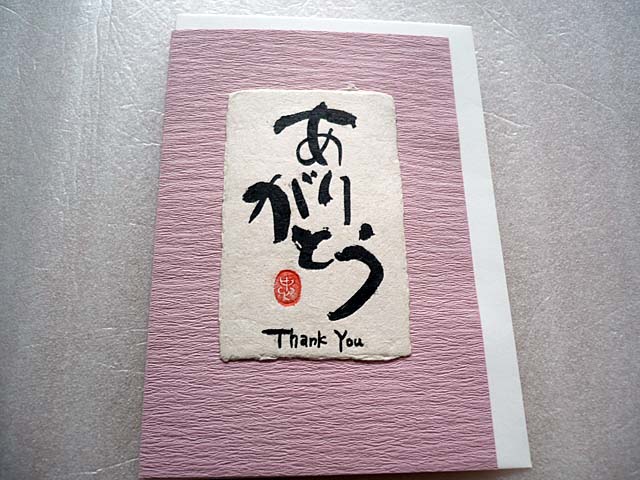 ありがとう
Thank You